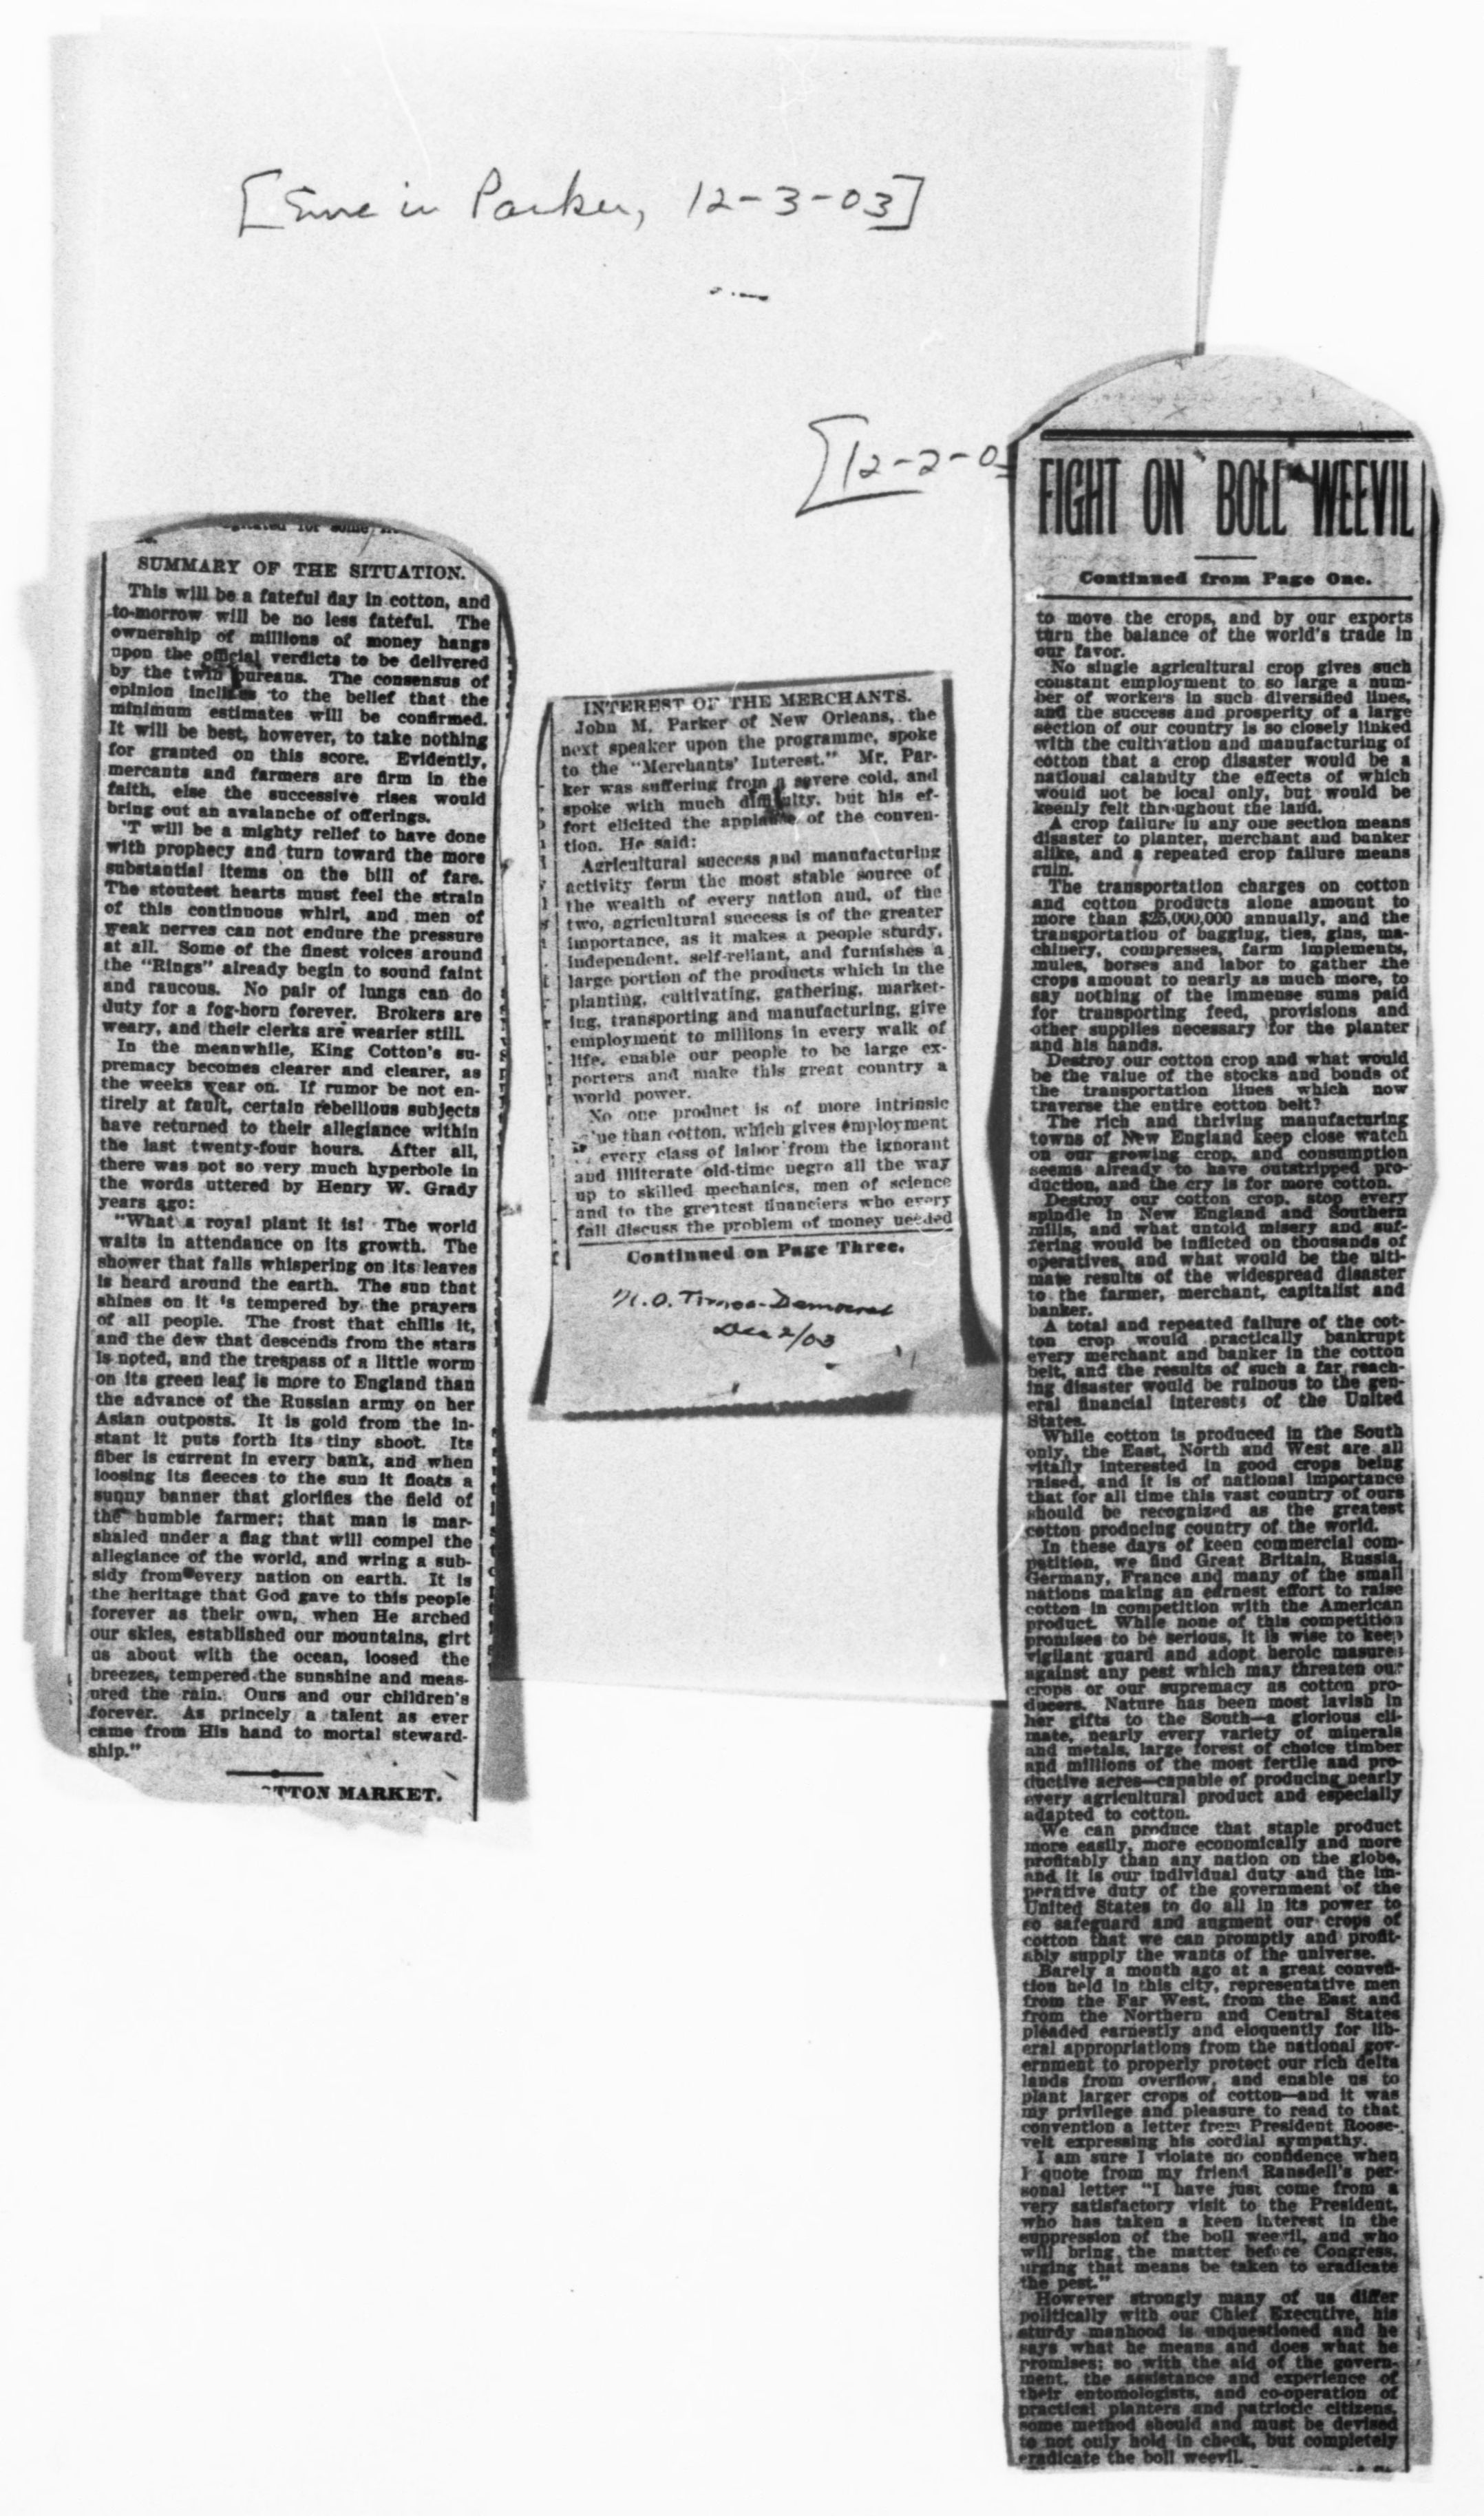 [Enc in Parker, 12-3-03]
[12-2-0
SUMMARY OF THE SITUATION.
This will be a fateful day in cotton, and
to-morrow will be no less fateful. The
ownership of millions of money hangs
upon the official verdicts to be delivered
by the twin bureaus. The consensus of
opinion inclines to the belief that the
minimum estimates will be confirmed.
It will be best, however, to take nothing
for granted on this score. Evidently,
mercants and farmers are firm in the
faith, else the successive rises would
bring out an avalanche of offerings.
'T will be a mighty relief to have done
with prophecy and turn toward the more
substantial items on the bill of fare.
The stoutest hearts must feel the strain
of this continuous whirl, and men of
weak nerves can not endure the pressure
at all. Some of the finest voices around
the "Rings" already begin to sound faint
and raucous. No pair of lungs can do
duty for a fog-horn forever. Brokers are
weary, and their clerks are wearier still.
In the meanwhile, King Cotton's su-
premacy becomes clearer and clearer, as
the weeks wear on. If rumor be not en-
tirely at fault, certain rebellious subjects
have returned to their allegiance within
the last twenty-four hours. After all,
there was not so very much hyperbole in
the words uttered by Henry W. Grady
years ago:
"What a royal plant it is! The world
waits in attendance on its growth. The
shower that falls whispering on its leaves
is heard around the earth. The sun that
shines on it is tempered by the prayers
of all people. The frost that chills it,
and the dew that descends from the stars
is noted, and the trespass of a little worm
on its green leaf is more to England than
the advance of the Russian army on her
Asian outposts. It is gold from the in-
stant it puts forth its tiny shoot. Its
fiber is current in every bank, and when
loosing its fleeces to the sun it floats a
sunny banner that glorifies the field of
the humble farmer; that man is mar-
shaled under a flag that will compel the
allegiance of the world, and wring a sub-
sidy from every nation on earth. It is
the heritage that God gave to this people
forever as their own, when He arched
our skies, established our mountains, girt
us about with the ocean, loosed the
breezes, tempered the sunshine and meas-
ured the rain. Ours and our children's
forever. As princely a talent as ever
came from His hand to mortal steward-
ship."
TTON MARKET.
INTEREST OF THE MERCHANTS.
John M. Parker of New Orleans, the
next speaker upon the programme, spoke
to the "Merchants' Interest." Mr. Par-
ker was suffering from a severe cold, and
spoke with much difficulty, but his ef-
fort elicited the applause of the conven-
tion. He said:
Agricultural success and manufacturing
activity form the most stable source of
the wealth of every nation and, of the
two, agricultural success is of the greater
importance, as it makes a people sturdy,
independent, self-reliant, and furnishes a
large portion of the products which in the
planting, cultivating, gathering, market-
ing, transporting and manufacturing, give
employment to millions in every walk of
life, enable our people to be large ex-
porters and make this great country a
world power.
No one product is of more intrinsic
ue than cotton, which gives employment
every class of labor from the ignorant
and illiterate old-time negro all the way
up to skilled mechanics, men of science
and to the greatest financiers who every
fall discuss the problem of money needed
Continued on Page Three.
N.O. Times-Democrat
Dec 2/03
FIGHT ON BOLL WEEVIL
Continued from Page One.
to move the crops, and by our exports
turn the balance of the world's trade in
our favor.
No single agricultural crop gives such
constant employment to so large a num-
ber of workers in such diversified lines,
and the success and prosperity of a large
section of our country is so closely linked
with the cultivation and manufacturing of
cotton that a crop disaster would be a
national calamity the effects of which
would not be local only, but would be
keenly felt throughout the land.
A crop failure in any one section means
disaster to planter, merchant and banker
alike, and a repeated crop failure means
ruin.
The transportation charges on cotton
and cotton products alone amount to
more than $25,000,000 annually, and the
transportation of bagging, ties, gins, ma-
chinery, compresses, farm implements,
mules, horses and labor to gather the
crops amount to nearly as much more, to
say nothing of the immense sums paid
for transporting feed, provisions and
other supplies necessary for the planter
and his hands.
Destroy our cotton crop and what would
be the value of the stocks and bonds of
the transportation lines which now
traverse the entire cotton belt?
The rich and thriving manufacturing
towns of New England keep close watch
on our growing crop, and consumption
seems already to have outstripped pro-
duction, and the cry is for more cotton.
Destroy our cotton crop, stop every
spindle in New England and Southern
mills, and what untold misery and suf-
fering would be inflicted on thousands of
operatives, and what would be the ulti-
mate results of the widespread disaster
to the farmer, merchant, capitalist and
banker.
A total and repeated failure of the cot-
ton crop would practically bankrupt
every merchant and banker in the cotton
belt, and the results of such a far reach-
ing disaster would be ruinous to the gen-
eral financial interests of the United
States.
While cotton is produced in the South
only, the East, North and West are all
vitally interested in good crops being
raised, and it is of national importance
that for all time this vast country of ours
should be recognized as the greatest
cotton producing country of the world.
In these days of keen commercial com-
petition, we find Great Britain, Russia,
Germany, France and many of the small
nations making an earnest effort to raise
cotton in competition with the American
product. While none of this competition
promises to be serious, it is wise to keep
vigilant guard and adopt heroic masures
against any pest which may threaten our
crops or our supremacy as cotton pro-
ducers. Nature has been most lavish in
her gifts to the South—a glorious cli-
mate, nearly every variety of minerals
and metals, large forest of choice timber
and millions of the most fertile and pro-
ductive acres—capable of producing nearly
every agricultural product and especially
adapted to cotton.
We can produce that staple product
more easily, more economically and more
profitably than any nation on the globe,
and it is our individual duty and the im-
perative duty of the government of the
United States to do all in its power to
so safeguard and augment our crops of
cotton that we can promptly and profit-
ably supply the wants of the universe.
Barely a month ago at a great conven-
tion held in this city, representative men
from the Far West, from the East and
from the Northern and Central States
pleaded earnestly and eloquently for lib-
eral appropriations from the national gov-
ernment to properly protect our rich delta
lands from overflow, and enable us to
plant larger crops of cotton—and it was
my privilege and pleasure to read to that
convention a letter from President Roose-
velt expressing his cordial sympathy.
I am sure I violate no confidence when
I quote from my friend Ransdell's per-
sonal letter "I have just come from a
very satisfactory visit to the President,
who has taken a keen interest in the
suppression of the boll weevil, and who
will bring the matter before Congress,
urging that means be taken to eradicate
the pest."
However strongly many of us differ
politically with our Chief Executive, his
sturdy manhood is unquestioned and he
says what he means and does what he
promises; so with the aid of the govern-
ment, the assistance and experience of
their entomologists, and co-operation of
practical planters and patriotic citizens,
some method should and must be devised
to not only hold in check, but completely
eradicate the boll weevil.